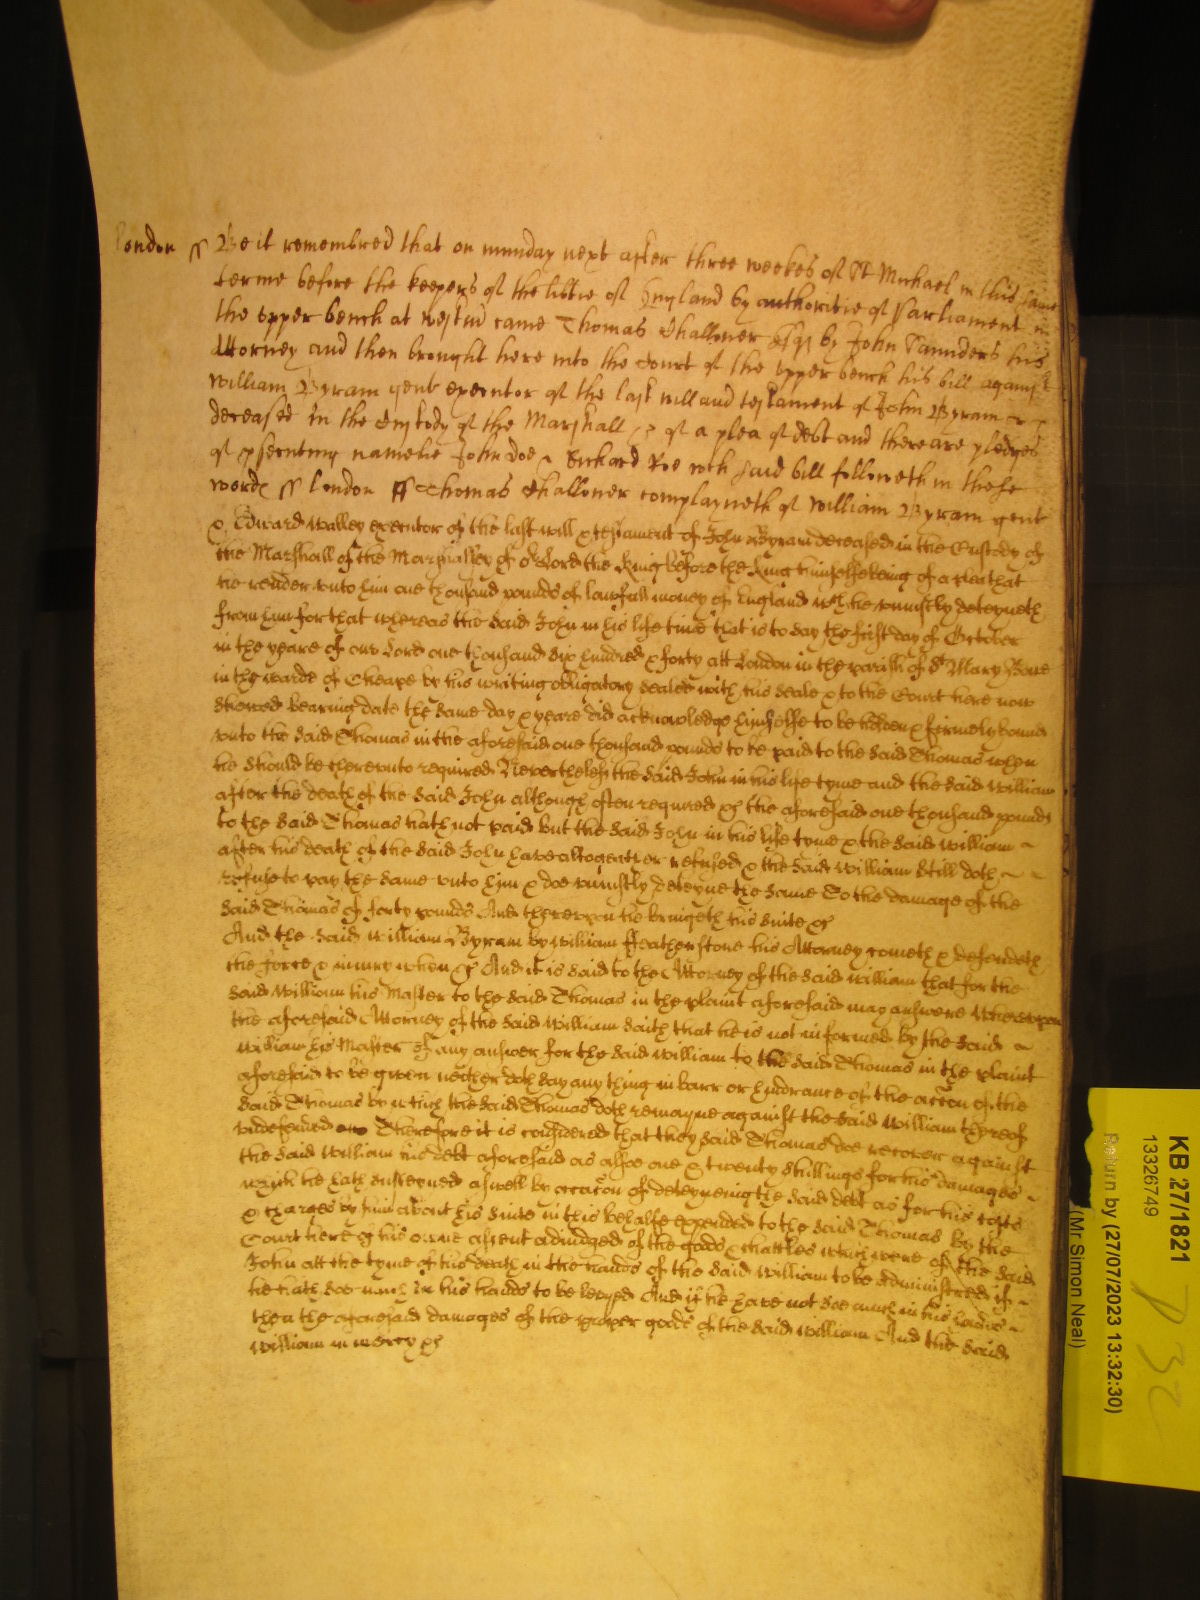 London ss Be it remembred that on munday next after three weekes of St Michael in this same
terme before the keepers of the libtie of England by authoritie of Parliament in
the upper bench at westm̄ came Thomas Challoner Esqr by John Saunders his
Attorney and then brought here into the Court of the upper bench his bill against
William Byram gent executor of the last will and testament of John Byram
deceased in the Custody of the Marshall &c of a plea of debt and there are pledges
of psecuting namelie John Doe & Richard Roe wch said bill followeth in these
words ss London ss Thomas Challoner complayneth of William Byram gent
& Edward Walley executor of the last will & testament of John Byram deceased in the Custody of
the Marshall of the Marshalsey of or Lord the King before the King himselfe being of a plea that
he render unto him one thousand pounds of lawfull money of England wch he uniustly deteyneth
from him for that whereas the said John in his life time that is to say the first day of October
in the yeare of our Lord one thousand six hundred & forty att London in the parish of St Mary Bowe
in the warde of Cheape by his writing obligatory sealed with his seale & to the Court here now
shewed bearing date the same day & yeare did acknowledge himselfe to be holden & firmely bound
unto the said Thomas in the aforesaid one thousand pounds to be paid to the said Thomas when
he should be thereunto required Neverthelesse the said John in his life tyme and the said William
after the death of the said John although often required &c the aforesaid one thousand pounds
to the said Thomas hath not paid but the said John in his life tyme & the said William
after his death of the said John have altogether refused & the said William still doth
refuse to pay the same unto him & doe uniustly deteyne the same To the damage of the
said Thomas of forty pounds And thereupon he bringeth his suite &c
And the said William Byram by William Featherstone his Attorney cometh & defendeth
the force & iniury when &c And it is said to the Attorney of the said William that for the
said William his Master to the said Thomas in the plaint aforesaid may answere Whereupon
the aforesaid Attorney of the said William saith that he is not informed by the said
William his Master of any answer for the said William to the said Thomas in the plaint
aforesaid to be given neither doth say any thing in barr or hindrance of the accon of the
said Thomas by which the said Thomas doth remayne against the said William thereof
undefended Therefore it is considered that they said Thomas doe recover against
the said William his debt aforesaid as alsoe one & twenty shillings for his damages
which he hath susteyned aswell by occacon of deteyneing the said debt as for his costs
& charges by him about his suite in this behalfe expended to the said Thomas by the
Court here of his owne assent adiudged of the goods & chattles which were of the said
John att the tyme of his death in the hands of the said William to be administred if
he hath soe much in his hands to be levyed And if he have not soe much in his hands
then the aforesaid damages of the proper goods of the said William And the said
William in mercy &c
KB 27/1821
13326749
Return by (27/07/2023 13:32:30)
(Mr Simon Neal)
P 32